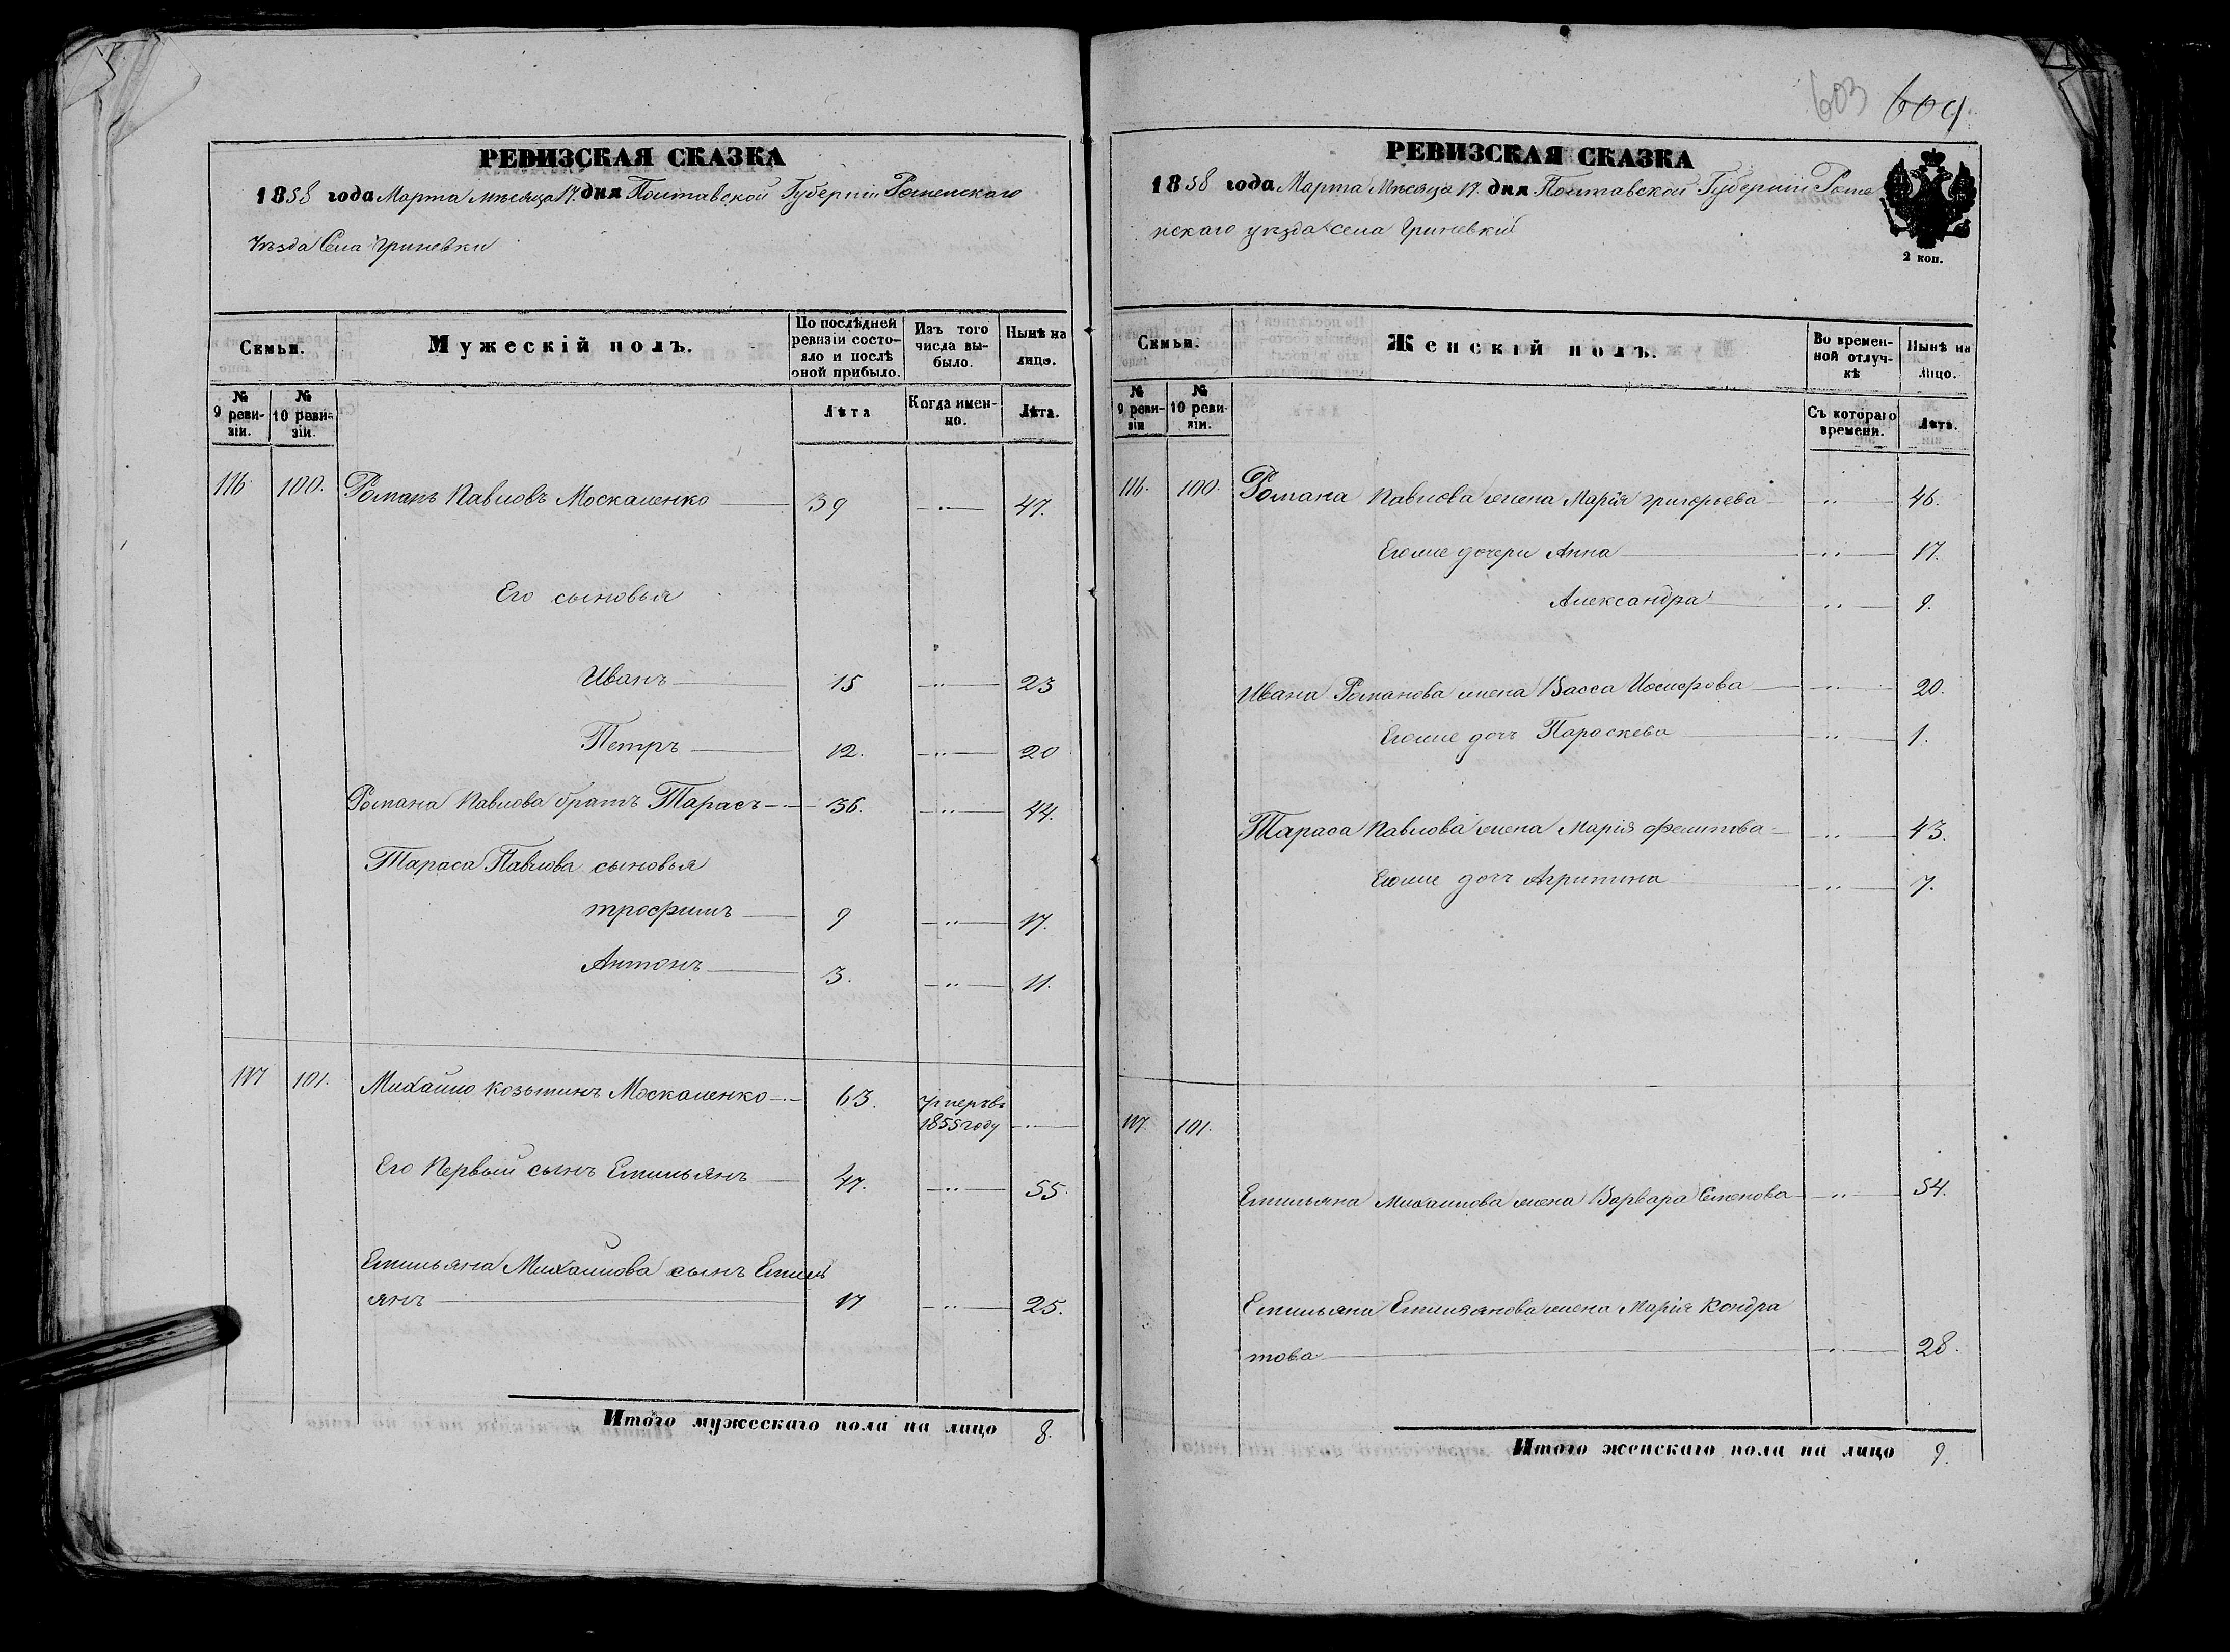 РЕВИЗСКАЯ СКАЗКА
1858 года Марта мѣсяца 17. дня Полтавской Губерніи Роменскаго
Уѣзда Села Гриневки
Семьи.
Мужескій полъ.
По послѣдней ревизіи состояло и послѣ оной прибыло.
Изъ того числа выбыло.
Нынѣ на лицо.
№ 9 ревизіи.
№ 10 ревизіи.
Лѣта
Когда именно.
Лѣта.
116 100. Романъ Павловъ Москаленко 39 — " — 47.
Его сыновья
Иванъ 15 — " — 23
Петръ 12. — " — 20
Романа Павлова братъ Тарасъ 36. — " — 44.
Тараса Павлова сыновья
Трофимъ 9 — " — 17.
Антонъ 3. — " — 11.
117 101. Михайло Козьминъ Москаленко 63. умеръ въ 1855 году — " —
Его Первый сынъ Емильянъ 47. — " — 55.
Емильяна Михайлова сынъ Емиль
янъ 17 — " — 25.
Итого мужескаго пола на лицо 8.
603 604
РЕВИЗСКАЯ СКАЗКА
1858 года Марта Мѣсяца 17. дня Полтавской Губерніи Роме
нскаго уѣзда села Гриневки
2 коп.
Семьи.
Женскій полъ.
Во временной отлучкѣ
Нынѣ на лицо.
№ 9 ревизіи
№ 10 ревизіи.
Съ котораго времени.
Лѣта.
116. 100. Романа Павлова жена Марія Григорьева — " — 46.
Его же дочери Анна — " — 17.
Александра — " — 9.
Ивана Романова жена Васса Иосифова — " — 20.
Его же дочь Параскева — " — 1.
Тараса Павлова жена Марія Филипова — " — 43.
Его же дочь Агрипина — " — 7.
117. 101.
Емильяна Михайлова жена Варвара Семенова — " — 54.
Емильяна Емильянова жена Марія Кондра
това — " — 28.
Итого женскаго пола на лицо 9.